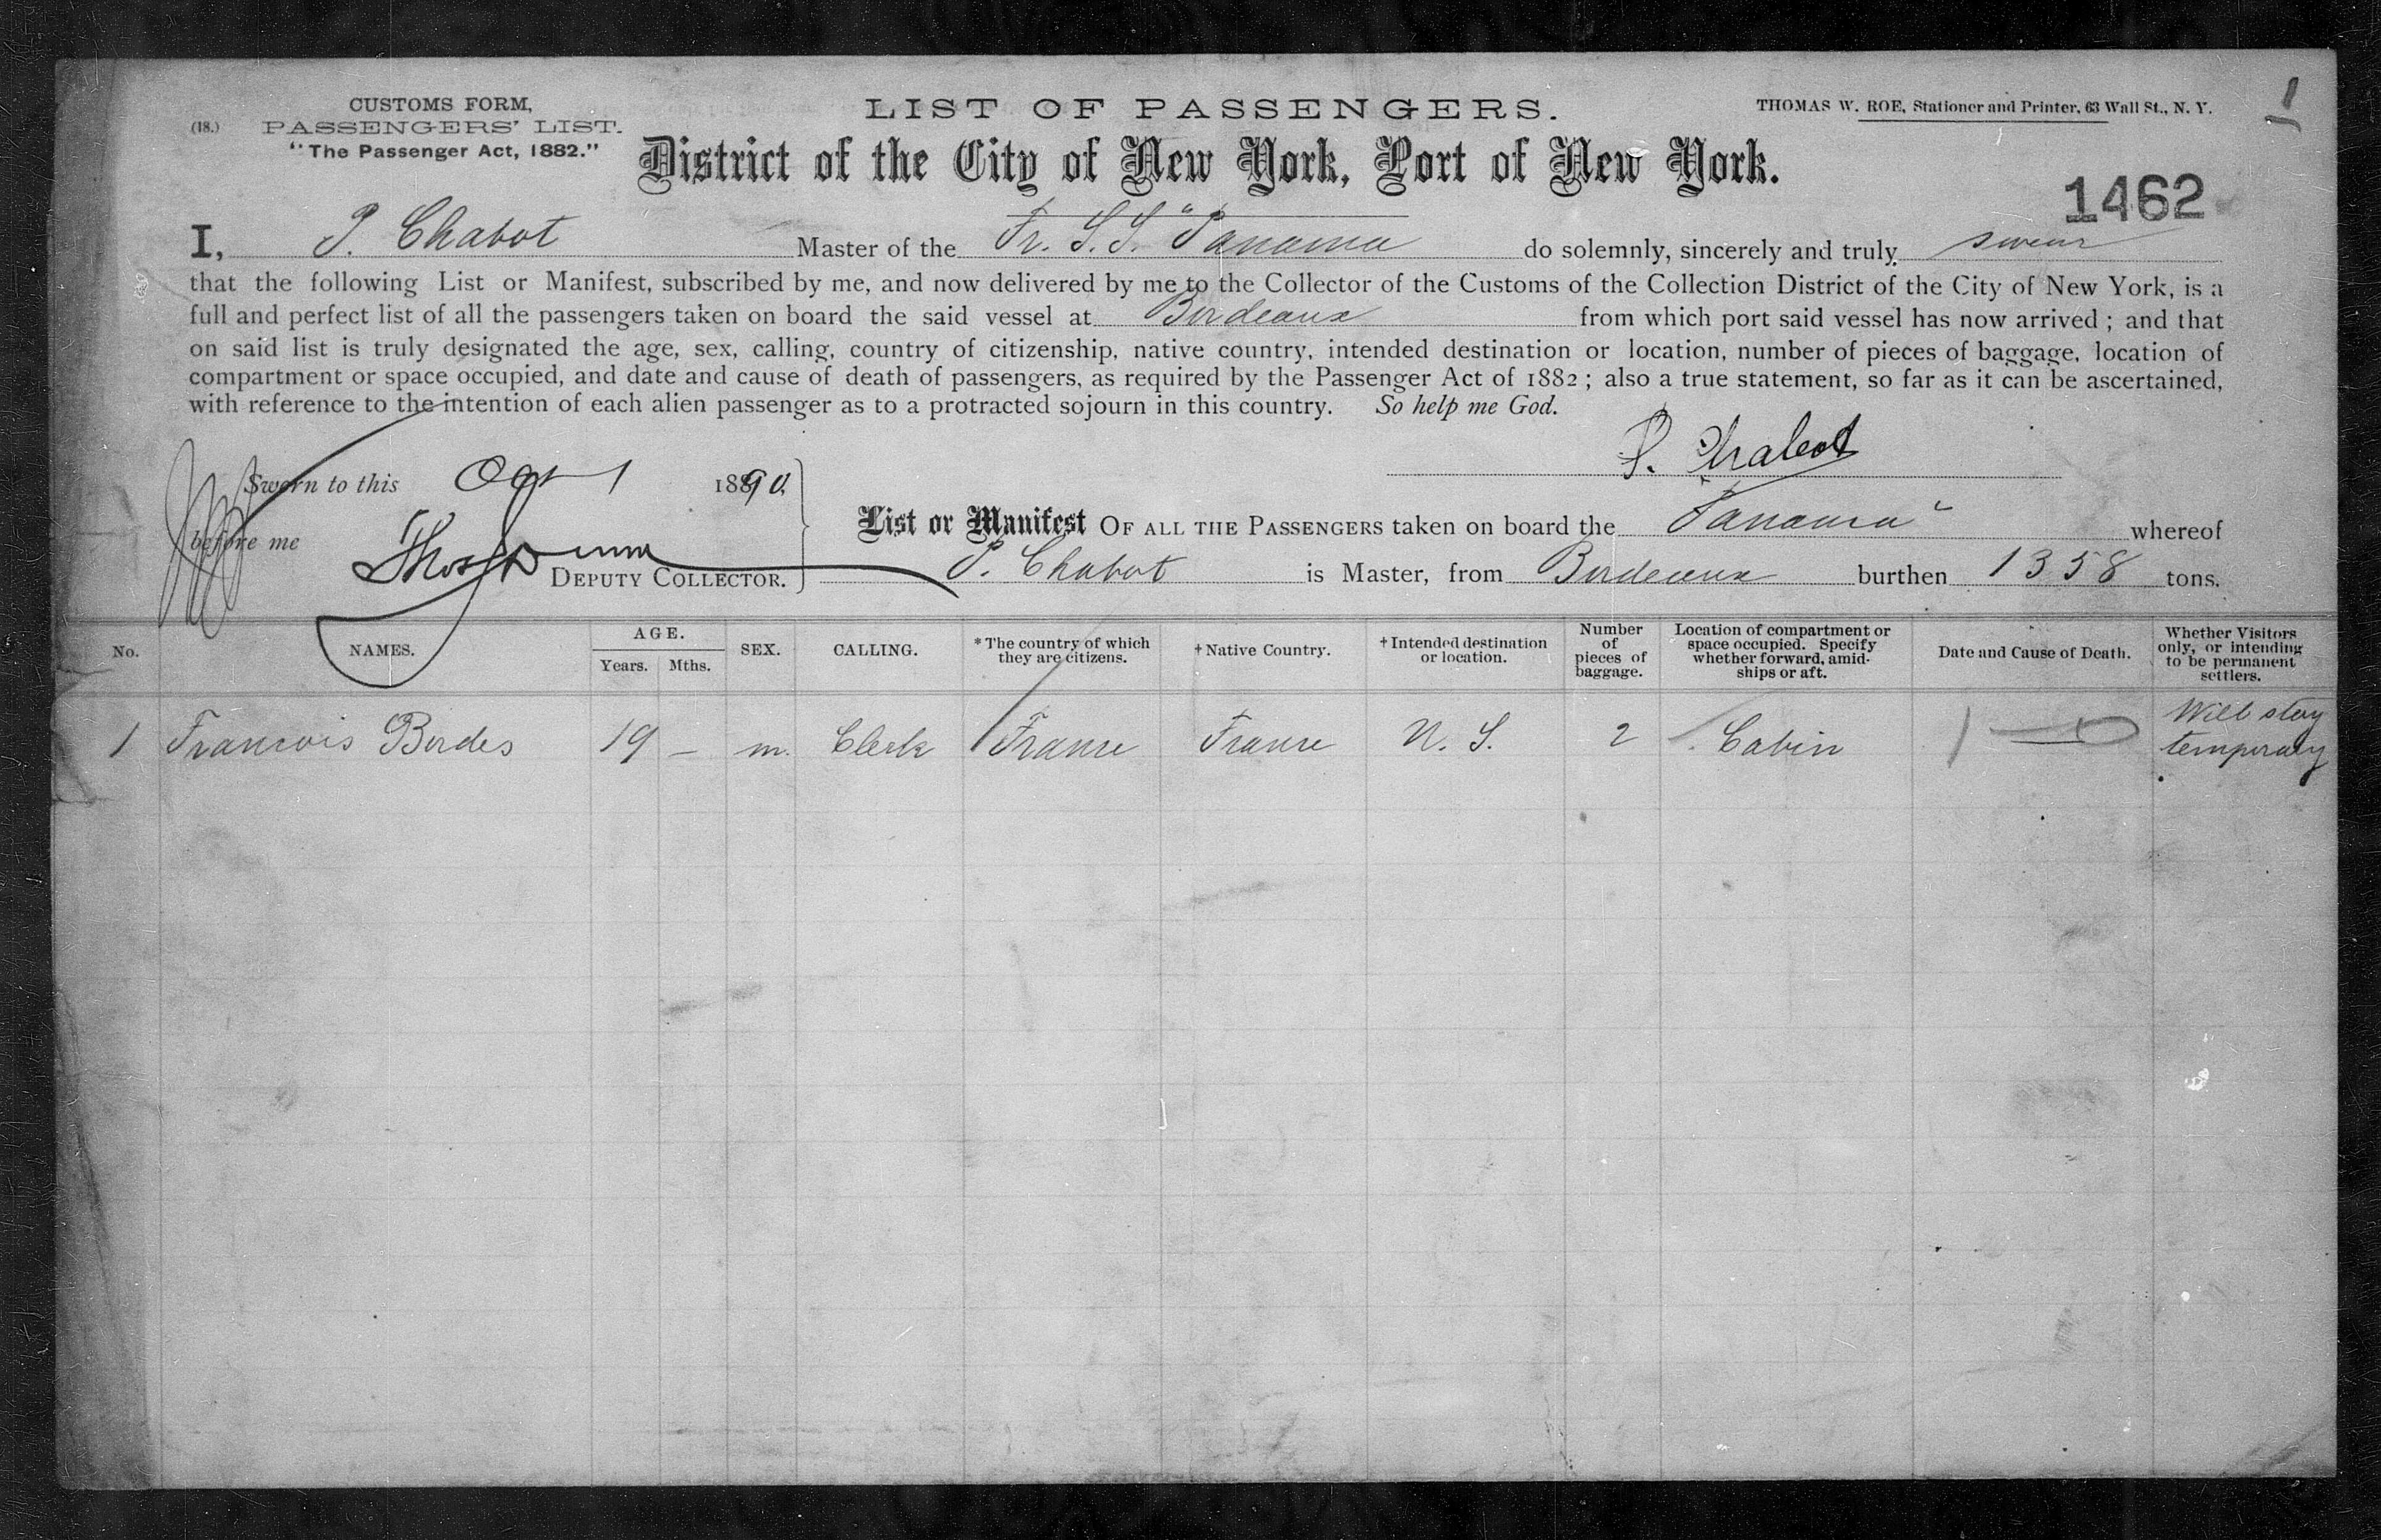 1
(18.) CUSTOMS FORM,
PASSENGERS' LIST.
"The Passenger Act, 1882."
LIST OF PASSENGERS.
THOMAS W. ROE, Stationer and Printer, 63 Wall St., N. Y.
District of the City of New York, Port of New York.
1462
I, P. Chabot Master of the Fr. S.S. "Panama do solemnly, sincerely and truly swear
that the following List or Manifest, subscribed by me, and now delivered by me to the Collector of the Customs of the Collection District of the City of New York, is a
full and perfect list of all the passengers taken on board the said vessel at Bordeaux from which port said vessel has now arrived ; and that
on said list is truly designated the age, sex, calling, country of citizenship, native country, intended destination or location, number of pieces of baggage, location of
compartment or space occupied, and date and cause of death of passengers, as required by the Passenger Act of 1882 ; also a true statement, so far as it can be ascertained,
with reference to the intention of each alien passenger as to a protracted sojourn in this country. So help me God.
P. Chabot
Sworn to this Oct 1 1890.
before me
Thos Dunn
DEPUTY COLLECTOR.
List or Manifest OF ALL THE PASSENGERS taken on board the Panama" whereof
P. Chabot is Master, from Bordeaux burthen 1358 tons.
No. NAMES. AGE. Years. Mths. SEX. CALLING. * The country of which they are citizens. † Native Country. † Intended destination or location. Number of pieces of baggage. Location of compartment or space occupied. Specify whether forward, amidships or aft. Date and Cause of Death. Whether Visitors only, or intending to be permanent settlers.
1 Francois Bordes 19 — m. Clerk France France U. S. 2 Cabin Will stay temporary